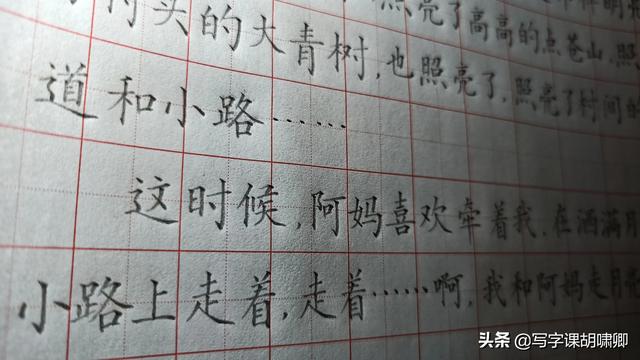 照亮了高高的点苍山,照
村头的大青树,也照亮了,照亮了村间
道和小路……
这时候,阿妈喜欢牵着我,在洒满月
小路上走着,走着……啊,我和阿妈走月
头条 @写字课胡啸卿